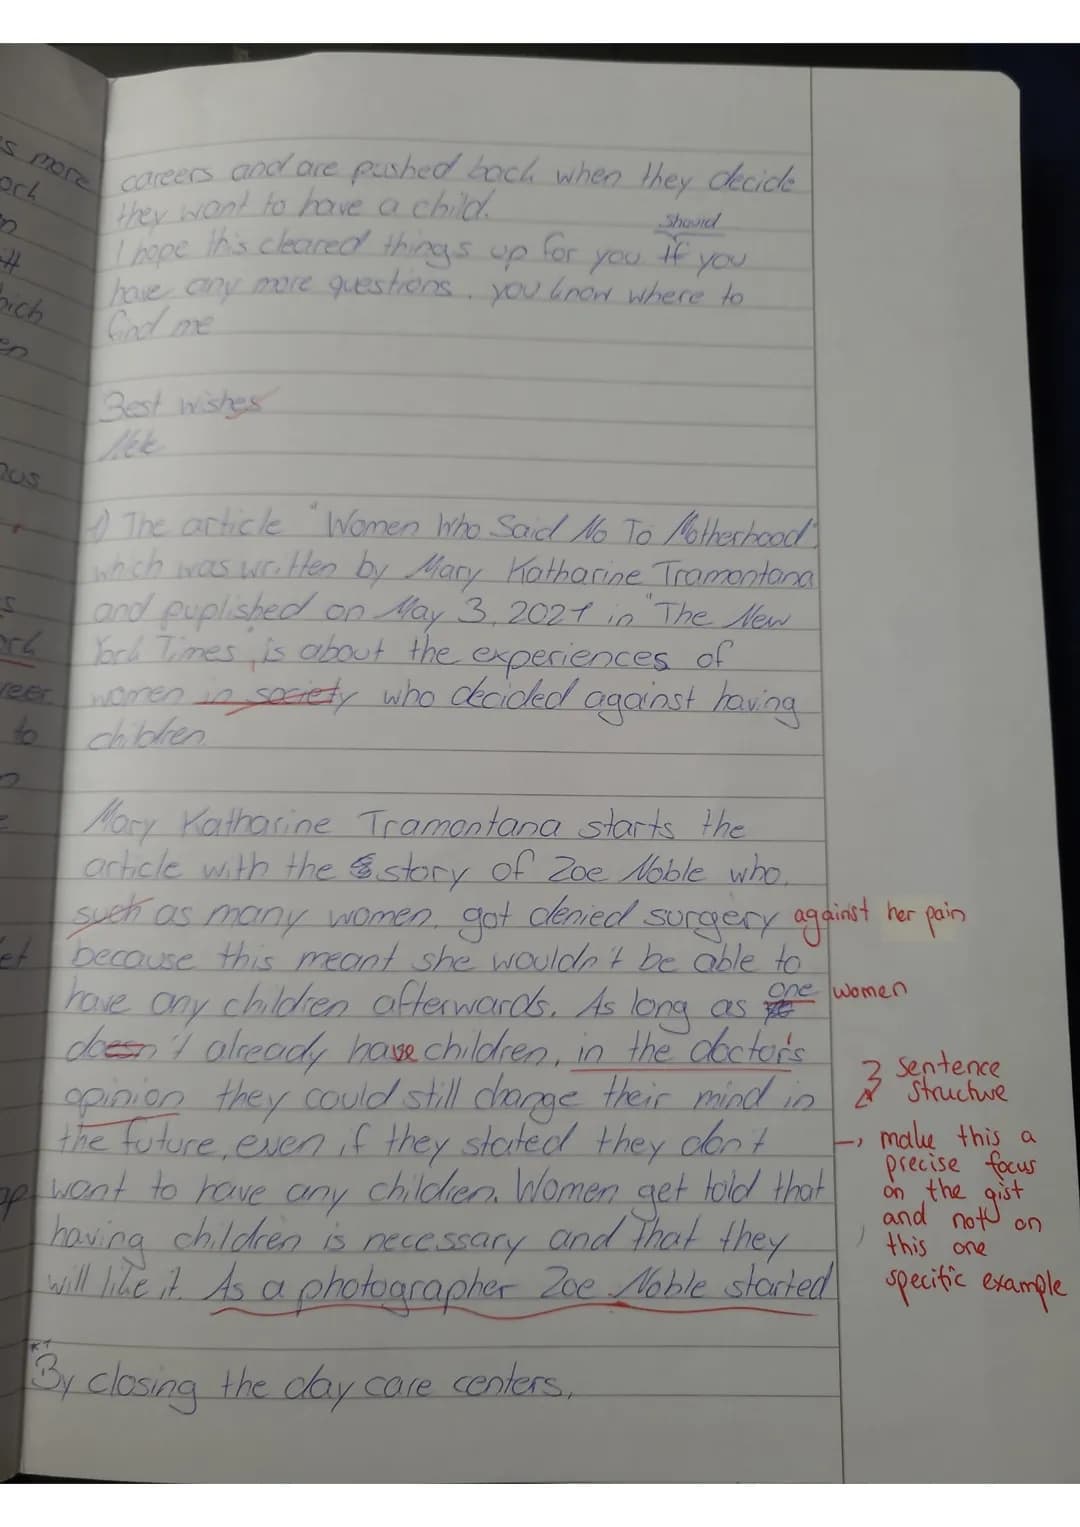 s more
careers and are pushed back when they decide
they want to have a child.
Should
I hope this cleared things up for you If you
have any more questions, you know where to
find me
Best wishes
1) The article "Women Who Said No To Motherhood",
which was written by Mary Katharine Tramontana
and puplished on May 3, 2021 in "The New
York Times", is about the experiences of
women in society who decided against having
children.
Mary Katharine Tramontana starts the
article with the story of Zoe Noble who,
such as many women, got denied surgery against her pain
because this meant she wouldn't be able to
have any children afterwards. As long as one women
doesn't already have children, in the doctor's
opinion they could still change their mind in
the future, even if they stated they don't
want to have any children. Women get told that
having children is necessary and that they
will like it. As a photographer Zoe Noble started
sentence
structure
→ make this a
precise focus
on the gist
and not on
this one
specific example
*1
By closing the day care centers,